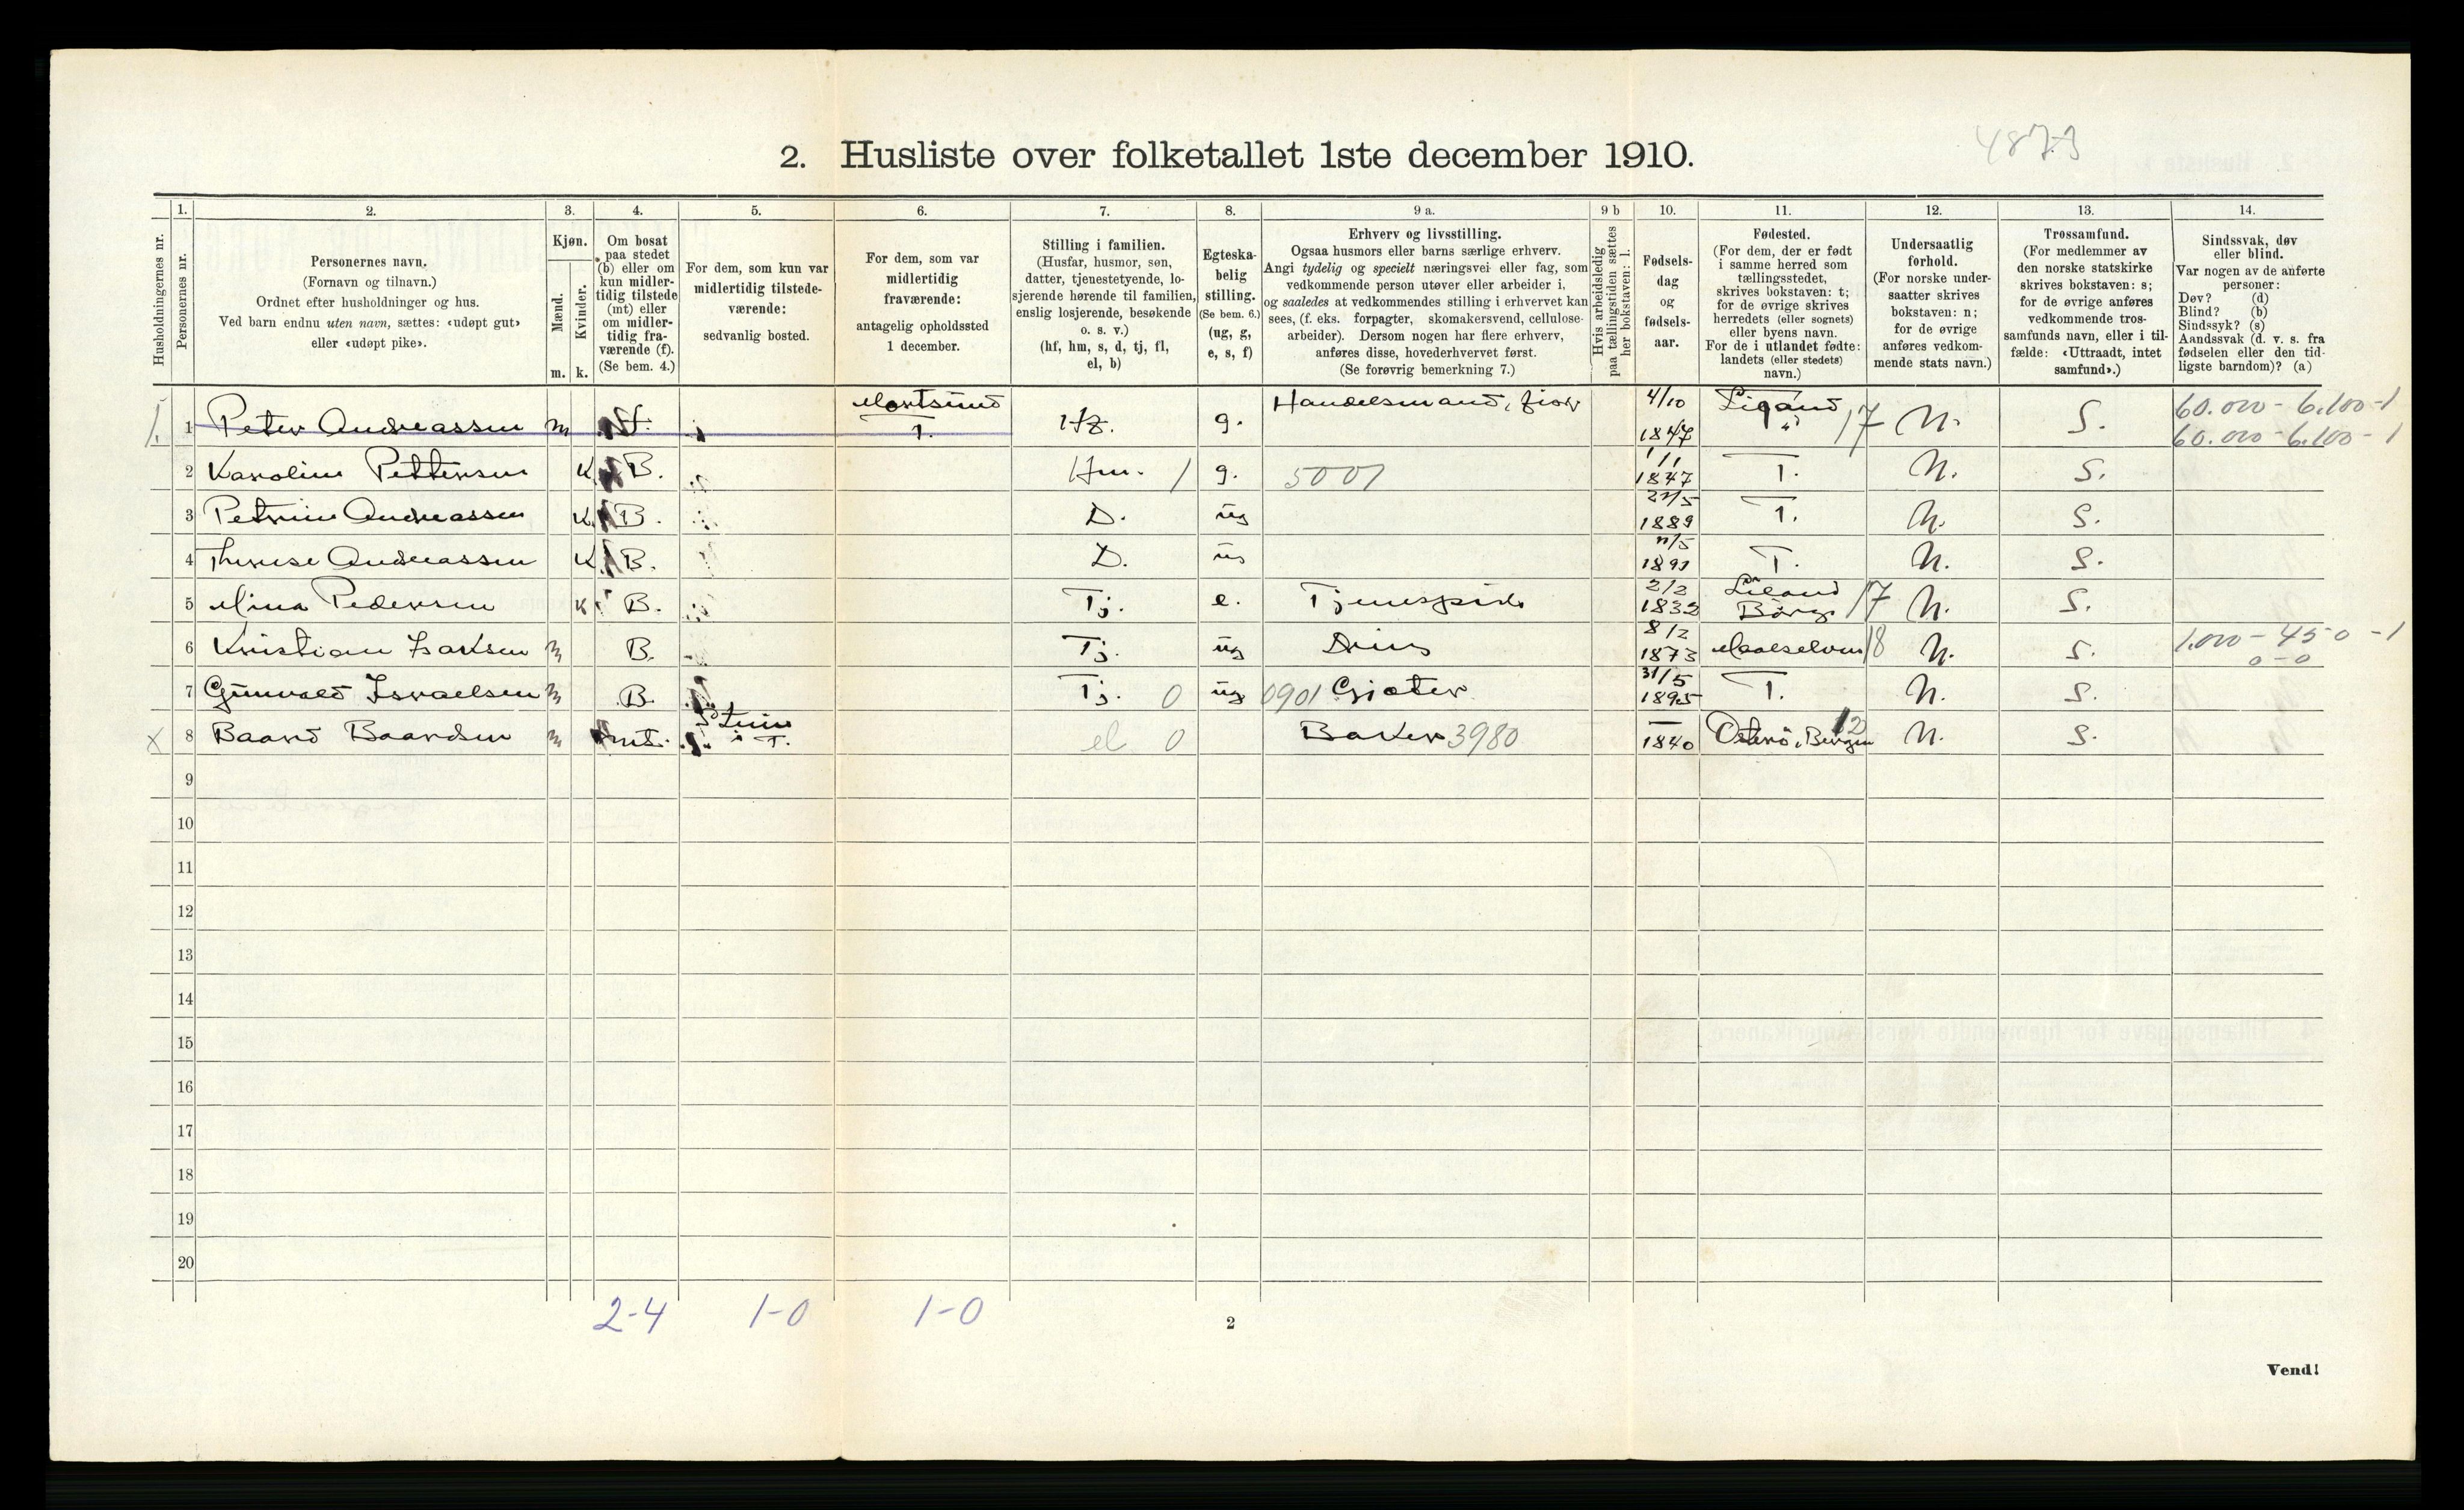 4873
2. Husliste over folketallet 1ste december 1910.
Husholdningernes nr.
1. Personernes nr.
2. Personernes navn. (Fornavn og tilnavn.) Ordnet efter husholdninger og hus. Ved barn endnu uten navn, sættes: «udøpt gut» eller «udøpt pike».
3. Kjøn. Mænd. m. Kvinder. k.
4. Om bosat paa stedet (b) eller om kun midlertidig tilstede (mt) eller om midlertidig fraværende (f). (Se bem. 4.)
5. For dem, som kun var midlertidig tilstedeværende: sedvanlig bosted.
6. For dem, som var midlertidig fraværende: antagelig opholdssted 1 december.
7. Stilling i familien. (Husfar, husmor, søn, datter, tjenestetyende, losjerende hørende til familien, enslig losjerende, besøkende o. s. v.) (hf, hm, s, d, tj, fl, el, b)
8. Egteskabelig stilling. (Se bem. 6.) (ug, g, e, s, f)
9 a. Erhverv og livsstilling. Ogsaa husmors eller barns særlige erhverv. Angi tydelig og specielt næringsvei eller fag, som vedkommende person utøver eller arbeider i, og saaledes at vedkommendes stilling i erhvervet kan sees, (f. eks. forpagter, skomakersvend, cellulosearbeider). Dersom nogen har flere erhverv, anføres disse, hovederhvervet først. (Se forøvrig bemerkning 7.)
9 b Hvis arbeidsledig paa tællingstiden sættes her bokstaven: l.
10. Fødselsdag og fødselsaar.
11. Fødested. (For dem, der er født i samme herred som tællingsstedet, skrives bokstaven: t; for de øvrige skrives herredets (eller sognets) eller byens navn. For de i utlandet fødte: landets (eller stedets) navn.)
12. Undersaatlig forhold. (For norske undersaatter skrives bokstaven: n; for de øvrige anføres vedkommende stats navn.)
13. Trossamfund. (For medlemmer av den norske statskirke skrives bokstaven: s; for de øvrige anføres vedkommende trossamfunds navn, eller i tilfælde: «Uttraadt, intet samfund».)
14. Sindssvak, døv eller blind. Var nogen av de anførte personer: Døv? (d) Blind? (b) Sindssyk? (s) Aandssvak (d. v. s. fra fødselen eller den tidligste barndom)? (a)
1 Peter Andreassen m f. Mortsund T. Hf. g. Handelsmand, 4/10 1847 17 N. S. 60.000 - 6.100 - 1 60.000 - 6.100 - 1
2 Karoline Pettersen K B. Hm. 1 g. 5001 1/1 1847 T. N. S.
3 Petrine Andreassen K B. D. ug 1889 T. N. S.
4 Therese Andreassen K B. D. ug 1891 T. N. S.
5 Mina Pedersen K B. Tj. e. Tjenespike 2/2 1832 Börge 17 N. S.
6 Kristian Isaksen m B. Tj. ug Dreng 8/2 1873 Maalselven 18 N. S. 1.000 - 450 - 1 0 - 0
7 Gunvald Israelsen m B. Tj. 0 ug 0901 Gjæter 31/5 1895 T. N. S.
x 8 Baard Baardsen m mt. i T. el 0 Baker 3980 1840 Osterö, Bergen 12 N. S.
9
10
11
12
13
14
15
16
17
18
19
20
2-4 1-0 1-0
2
Vend!